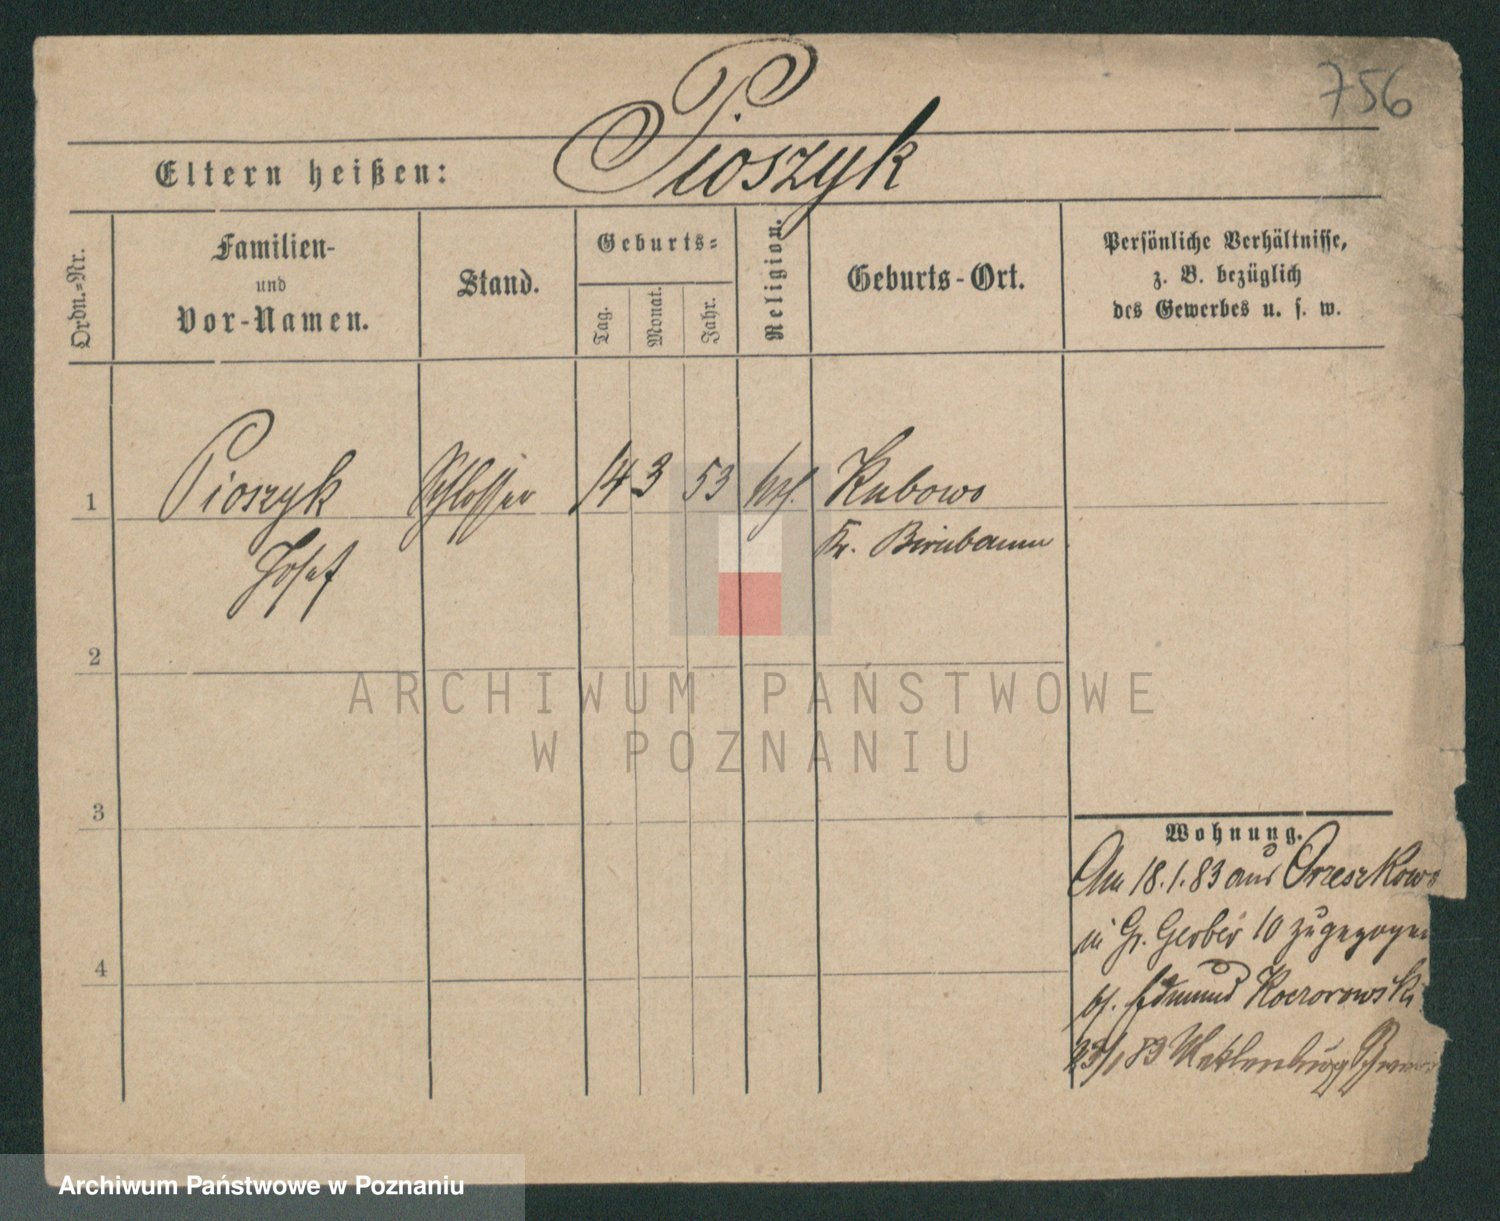 756
Pioszyk
Eltern heißen:
Ordn.=Nr.
Familien-
und
Vor-Namen.
Stand.
Geburts=
Tag.
Monat.
Jahr.
Religion.
Geburts-Ort.
Persönliche Verhältnisse,
z. B. bezüglich
des Gewerbes u. s. w.
1 Pioszyk Schlosser 14 3 53 Kubowo
Josef Kr. Birnbaum
2
ARCHIWUM PAŃSTWOWE
W POZNANIU
3
Wohnung.
Am 18.1.83 aus Orzeszkowo
in Gr. Gerber 10 zugezogen
4
bs. Edmund Koczorowski
23/1 83 Meklenburg
Archiwum Państwowe w Poznaniu